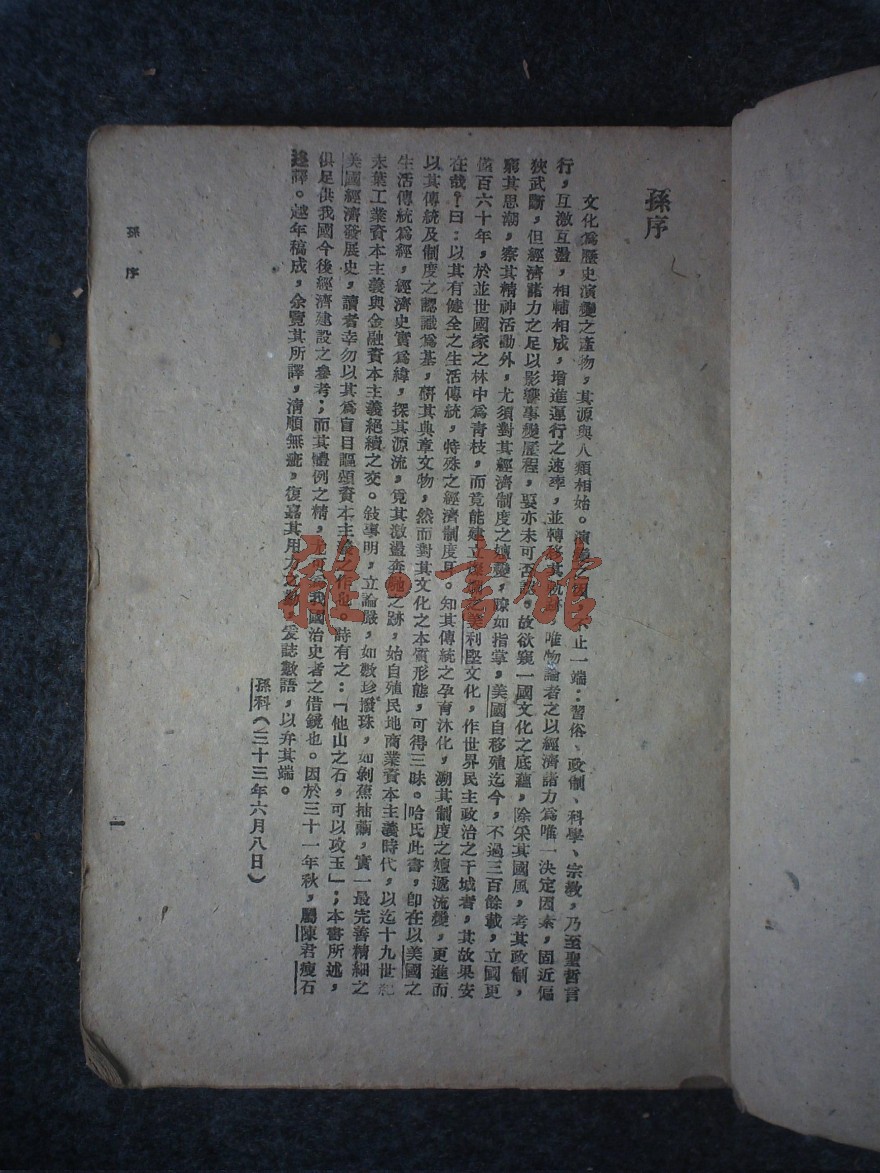 孫序
文化爲歷史演變之產物，其源與人類相始。演變之因，不止一端：習俗、政制、科學、宗教，乃至聖哲言
行，互激互盪，相輔相成，增進運行之速率，並轉移其軌跡。唯物論者之以經濟諸力爲唯一決定因素，固近偏
狹武斷，但經濟諸力之足以影響事變歷程，要亦未可否認。故欲窺一國文化之底蘊，除采其國風，考其政制，
窮其思潮，察其精神活動外，尤須對其經濟制度之嬗變，瞭如指掌，美國自移殖迄今，不過三百餘載，立國更
僅百六十年，於並世國家之林中爲青枝，而竟能建立燦爛之美利堅文化，作世界民主政治之干城者，其故果安
在哉？曰：以其有健全之生活傳統，特殊之經濟制度耳。知其傳統之孕育沐化，溯其制度之嬗遞流變，更進而
以其傳統及制度之認識爲基，研其典章文物，然而對其文化之本質形態，可得三昧。哈氏此書，卽在以美國之
生活傳統爲經，經濟史實爲緯，探其源流，覓其激盪奔馳之跡，始自殖民地商業資本主義時代，以迄十九世紀
末葉工業資本主義與金融資本主義絕續之交。敍事明，立論嚴，如數珍撥珠，如剝蕉抽繭，實一最完善精細之
美國經濟發展史，讀者幸勿以其爲盲目謳頌資本主義之作也。詩有之：「他山之石，可以攻玉」；本書所述，
俱足供我國今後經濟建設之參考；而其體例之精，尤可爲我國治史者之借鏡也。因於三十一年秋，屬陳君瘦石
迻譯。越年稿成，余覽其所譯，清順無疵，復嘉其用力之勤，爰誌數語，以弁其端。
孫科（三十三年六月八日）
孫 序
一
雜·書館